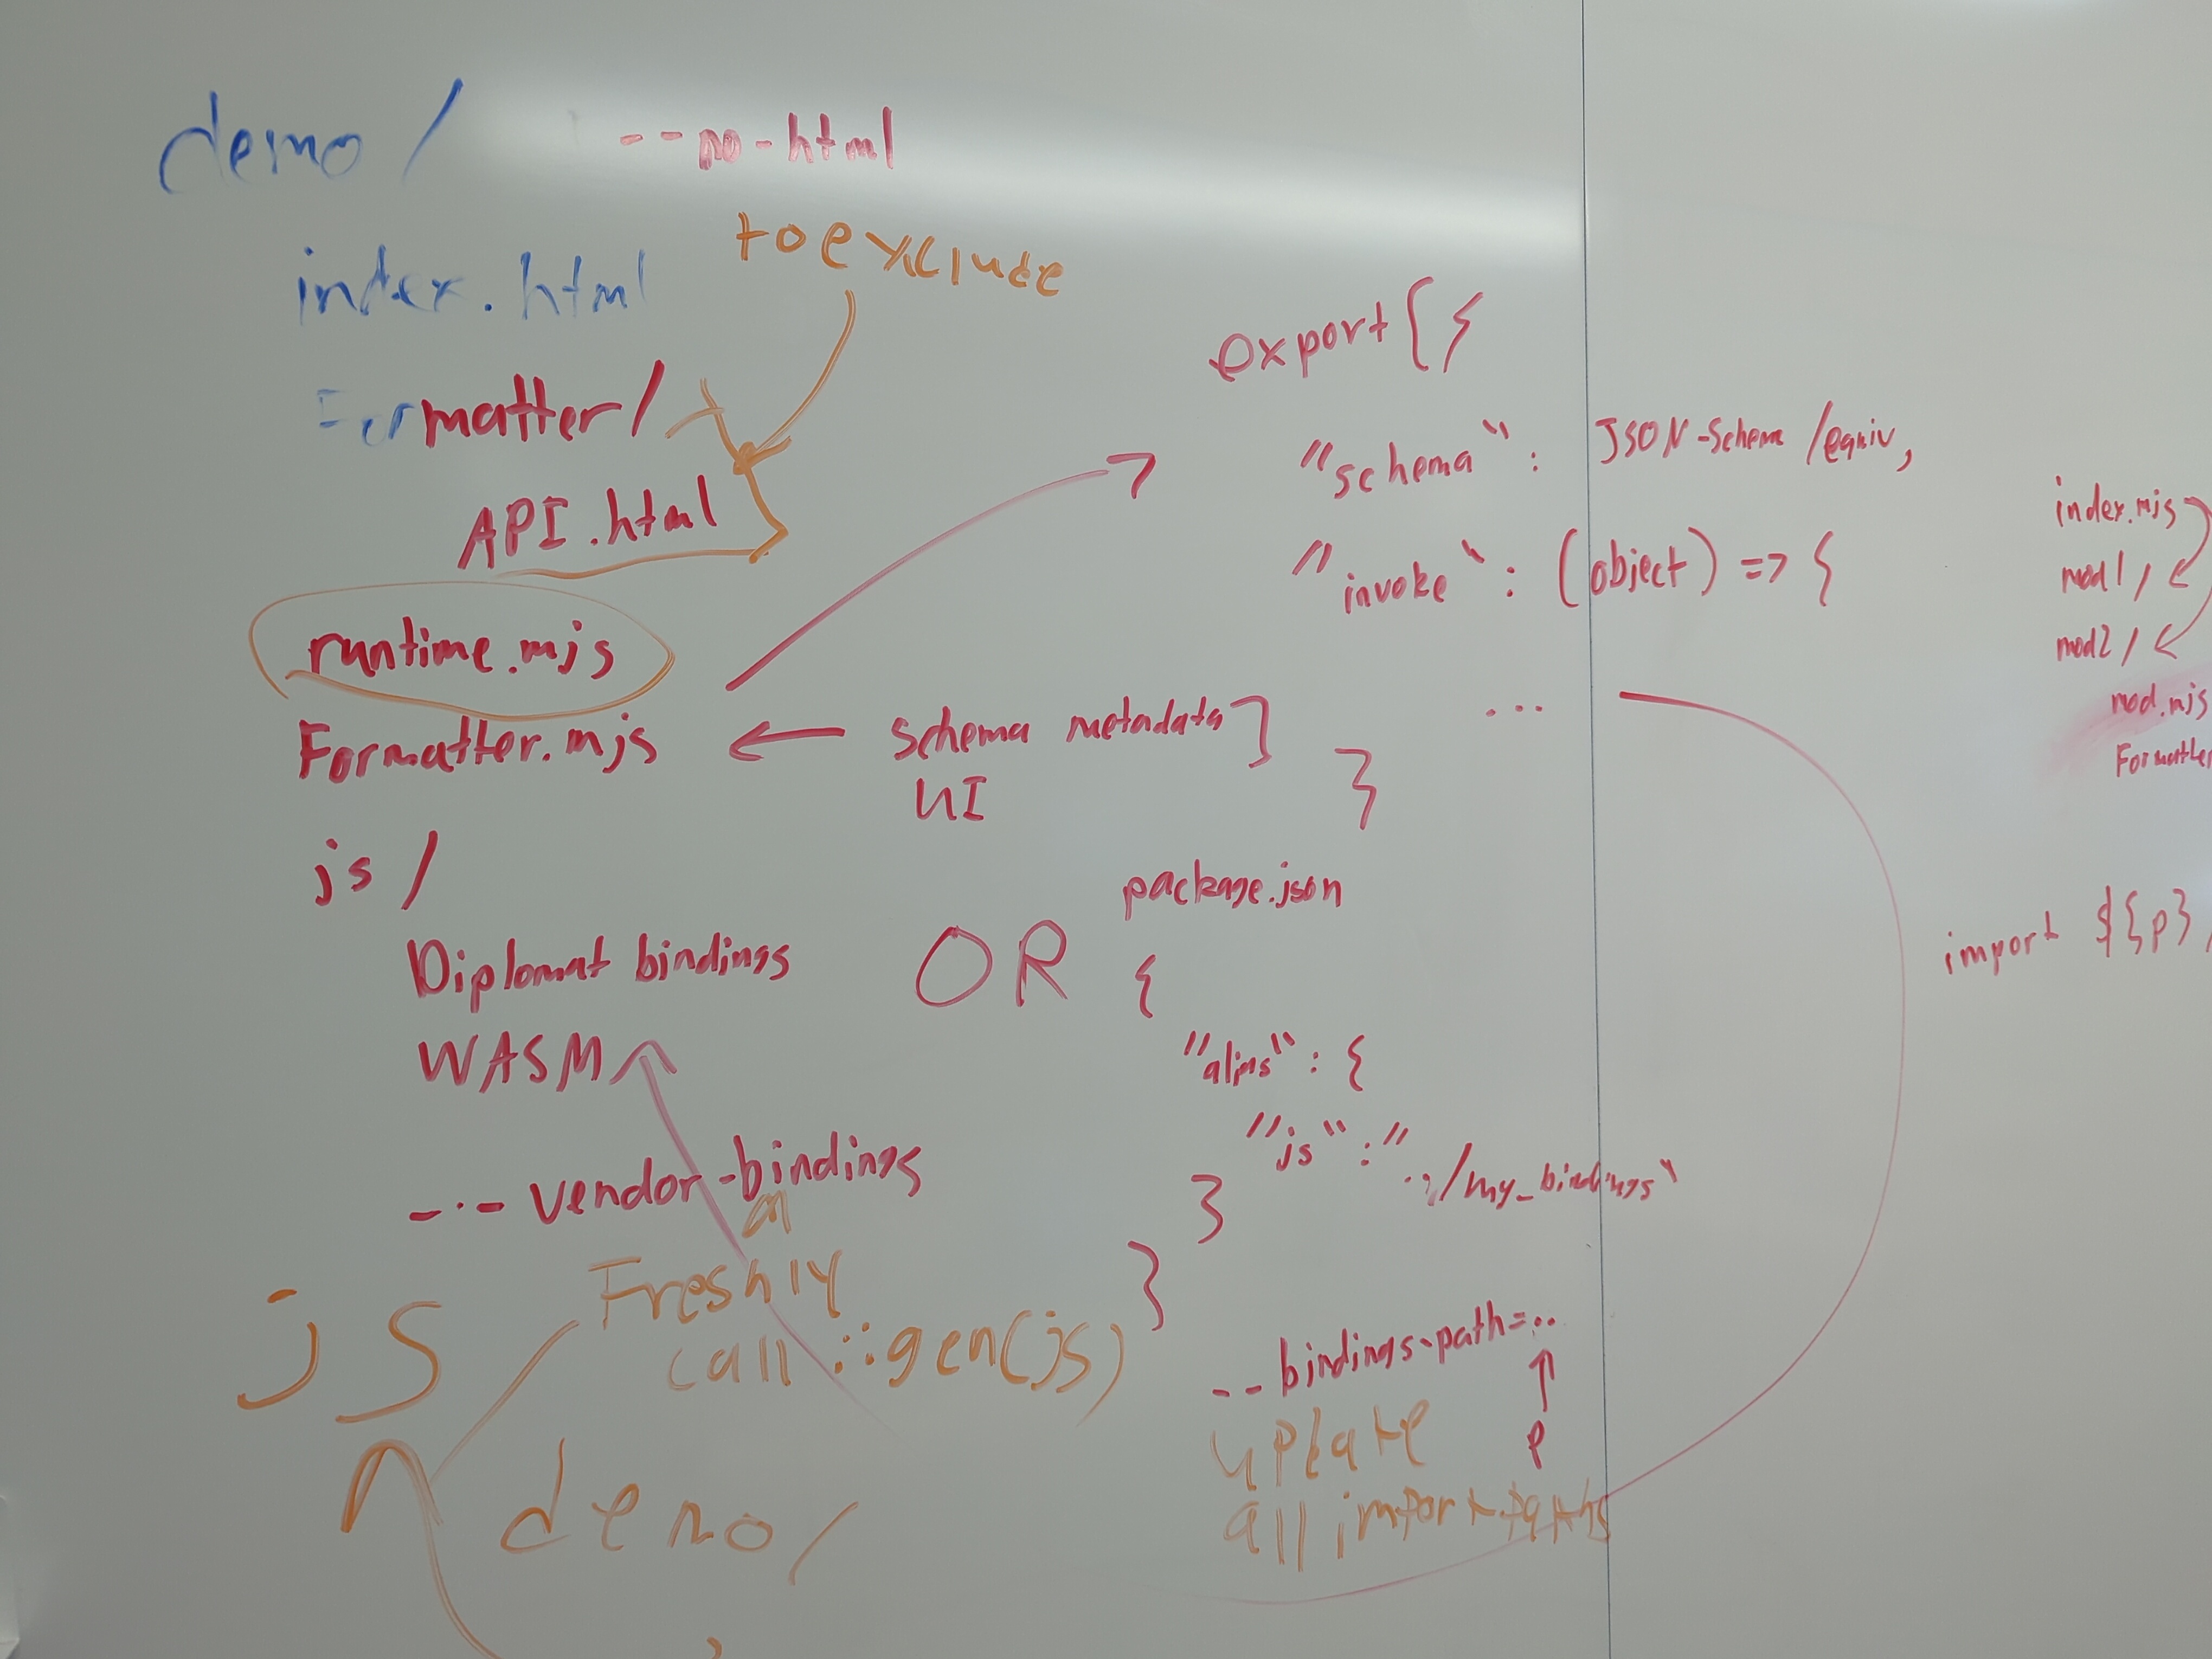 demo/
--no-html
to exclude
index.html
Formatter/
API.html
runtime.mjs
Formatter.mjs
schema metadata
UI
js/
Diplomat bindings
WASM
--vendor-bindings
export {{
"schema": JSON-Schema/equiv,
"invoke": (object) => {
...
}
}
OR
package.json
{
"alias": {
"js": "../my_bindings"
}
}
--bindings-path=..
p
update
all import paths
js
Freshly
call ::gen(js)
demo/
index.mjs
mod1/
mod2/
mod.mjs
Formatter
import ${p}/